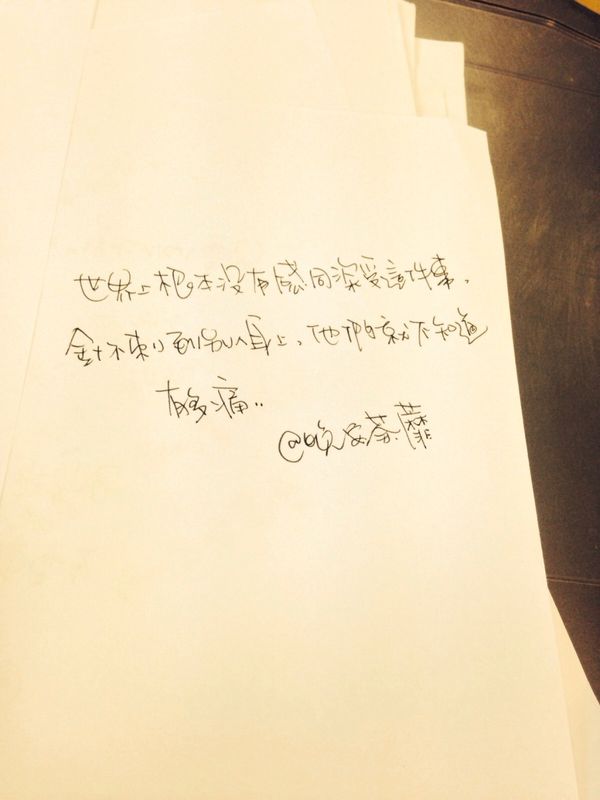 世界上根本沒有感同深受這件事，
針不刺到別人身上，他們就不知道
有多痛..
@晚安荼蘼